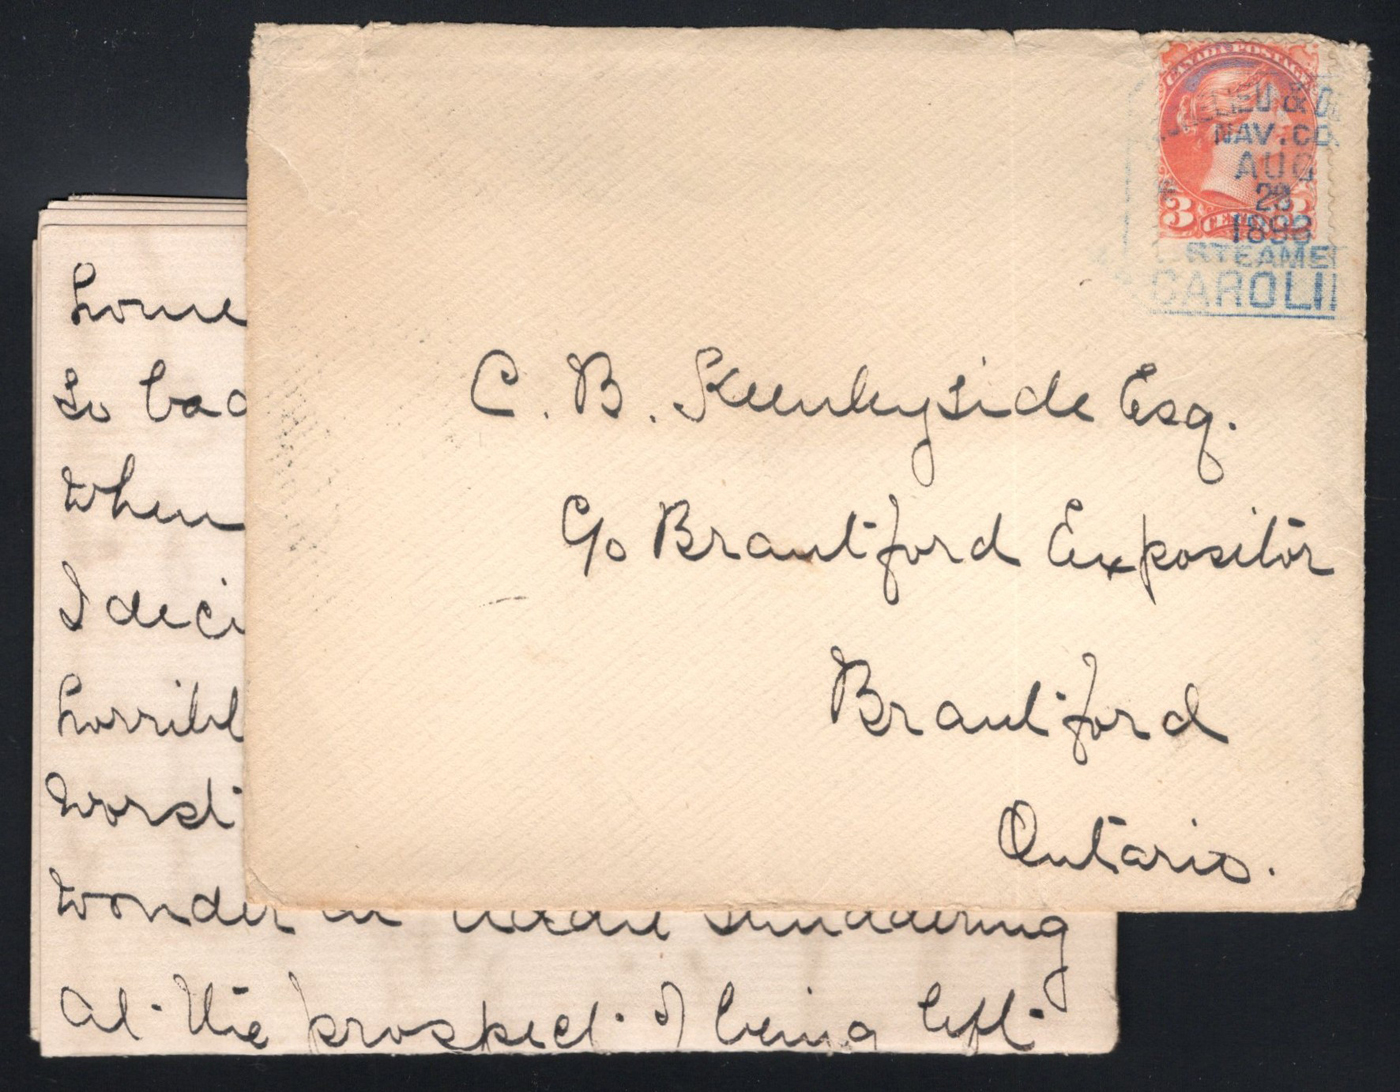 CANADA POSTAGE
3 CENTS 3
LIEU &
NAV.CO.
AUG
23
1893
STEAME
CAROLI
C. B. Keenleyside Esq.
c/o Brantford Expositor
Brantford
Ontario.
home
so bad
when
I deci
horribl
worst
wonder at shuddering
at the prospect of being left